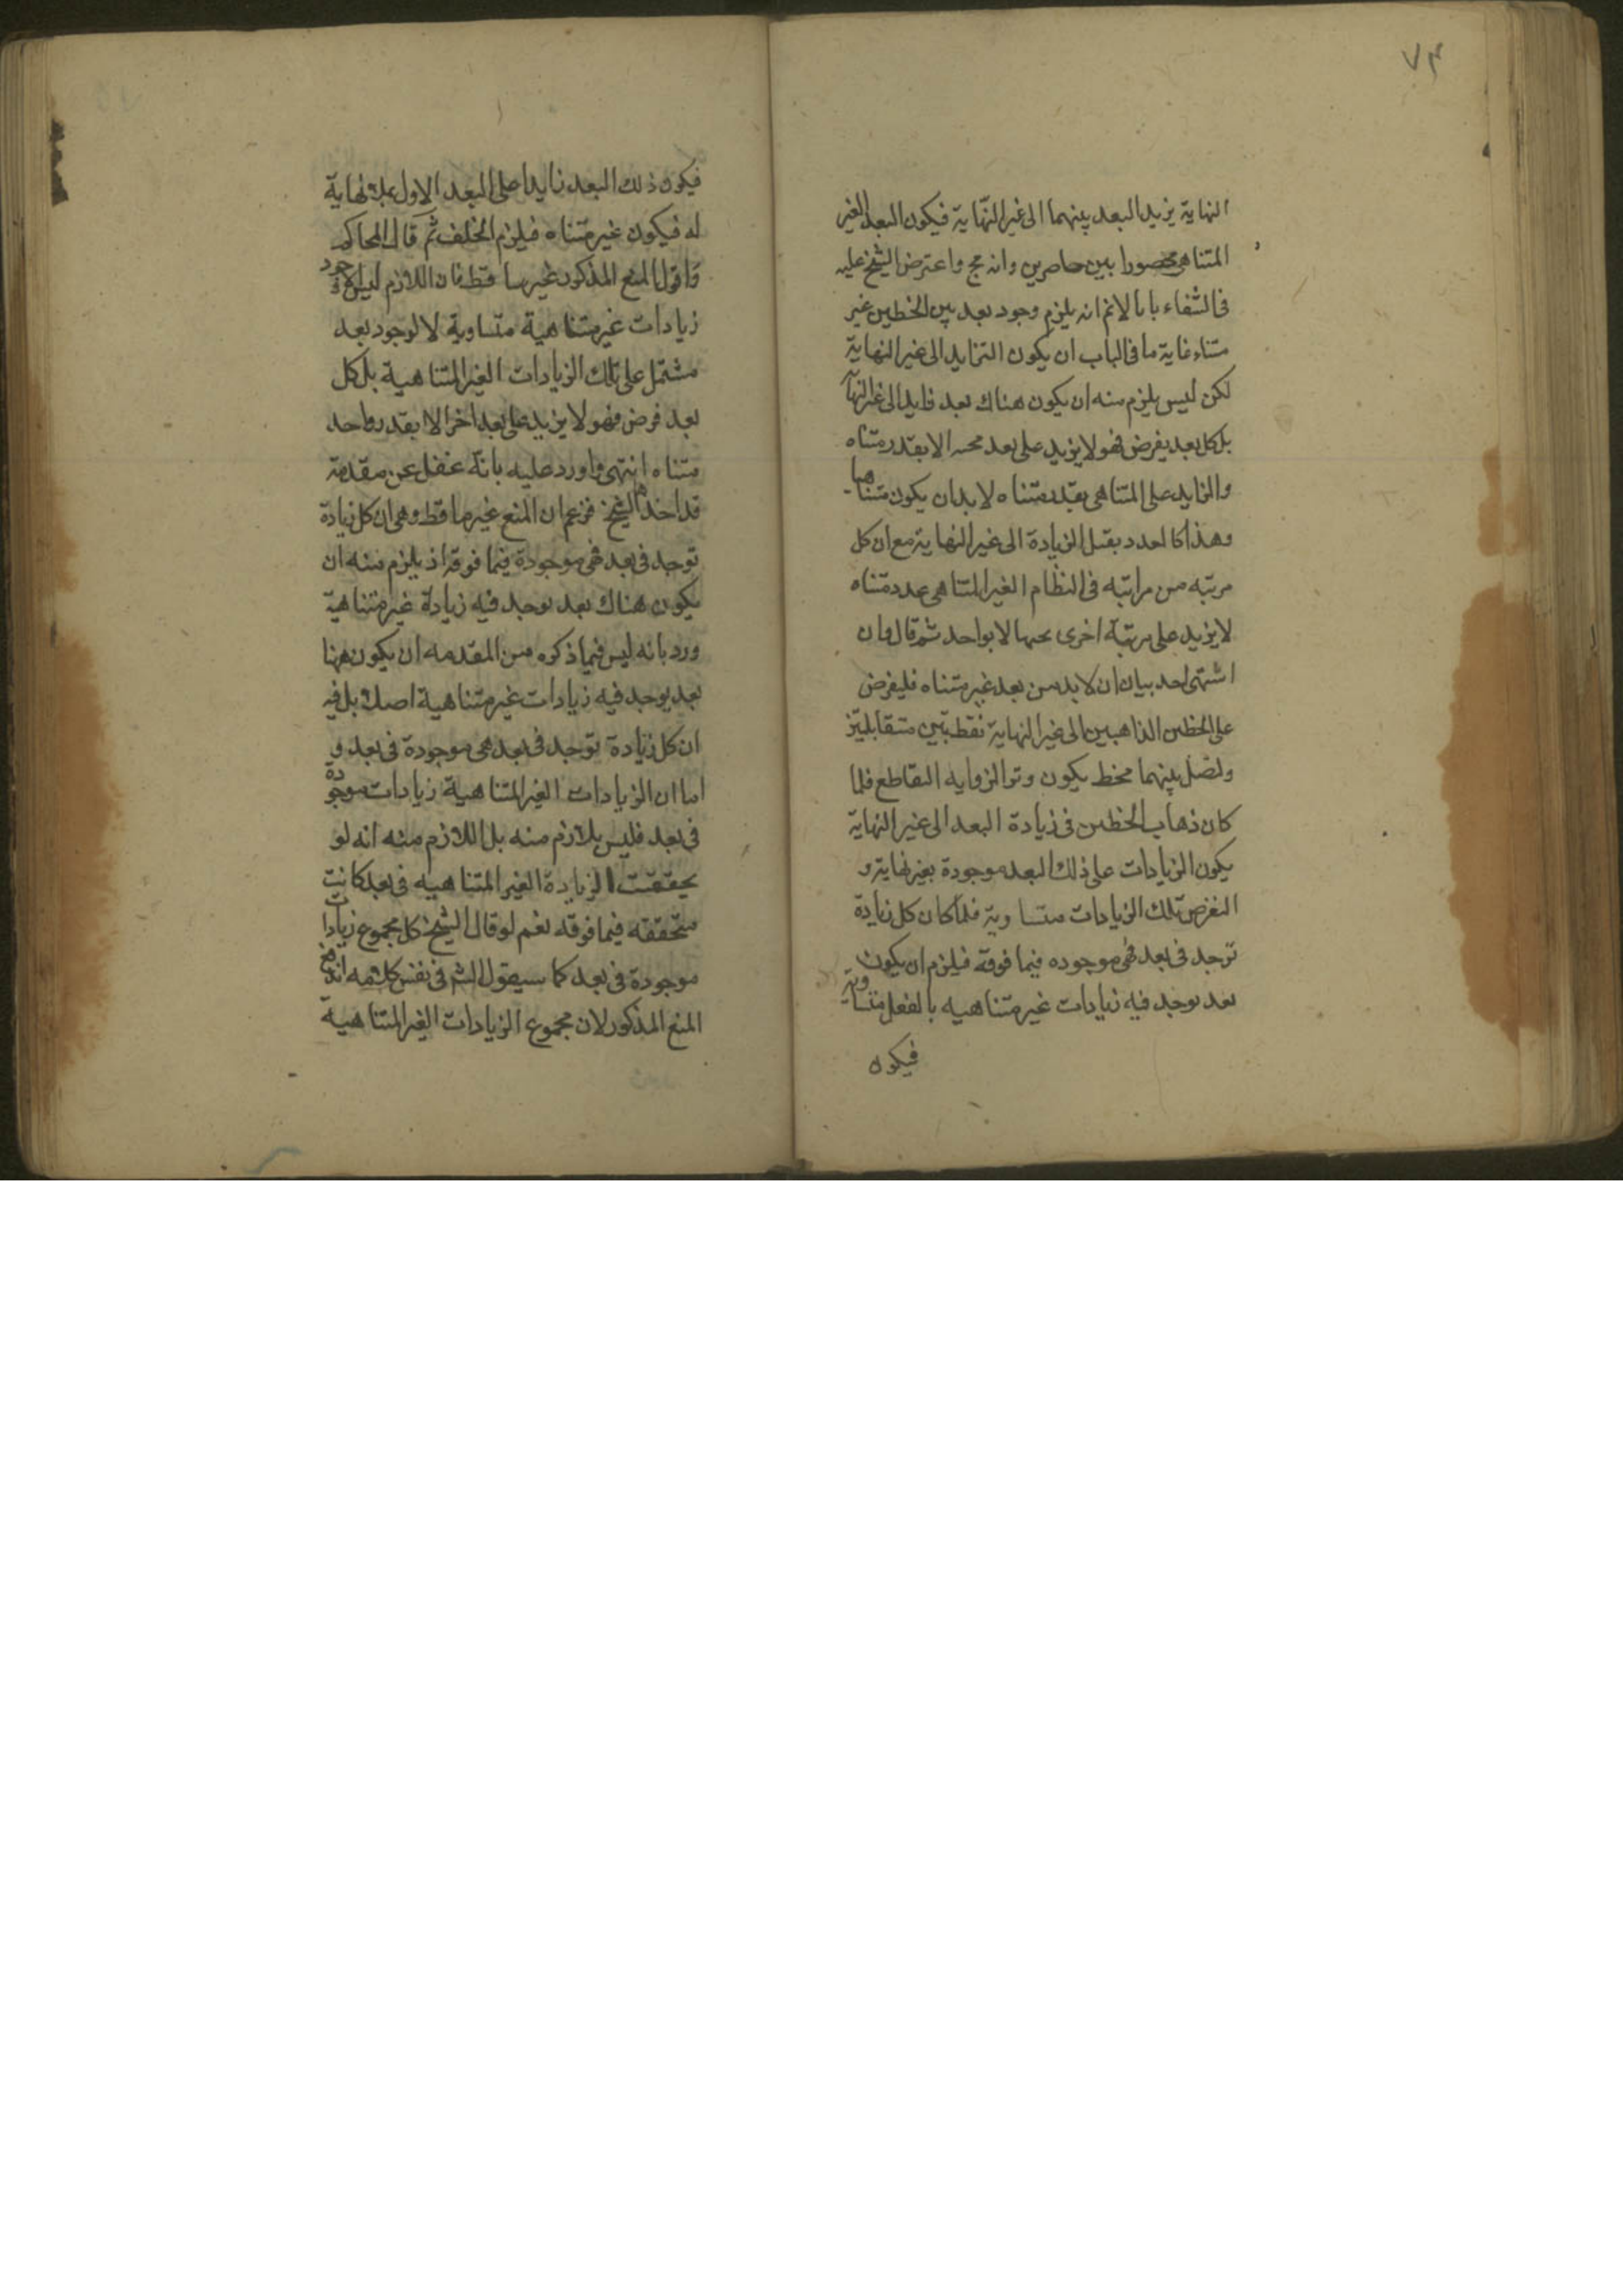 ٧٣
النهاية يزيد البعد بينهما الى غير النهاية فيكون البعد الغير
المتناهى محصورا بين حاصرين وانه مح واعترض الشيخ عليه
فى الشفاء بانا لانم انه يلزم وجود بعد بين الخطين غير
متناه غاية ما فى الباب ان يكون التزايد الى غير النهاية
لكن ليس يلزم منه ان يكون هناك بعد زايد الى غير النهاية
بل كل بعد يفرض فهو لا يزيد على بعد تحته الا بقدر متناه
والزايد على المتناهى بقدر متناه لا بد ان يكون متناهيا
وهذا كالعدد يقبل الزيادة الى غير النهاية مع ان كل
مرتبه من مراتبه فى النظام الغير المتناهى عدد متناه
لا يزيد على مرتبة اخرى تحتها الا بواحد ثم قال وان
اشتهى احد بيان ان لا بد من بعد غير متناه فليفرض
على الخطين الذاهبين الى غير النهاية نقطتين متقابلتين
ولنصل بينهما بخط يكون وتر الزوايه التقاطع فلما
كان ذهاب الخطين فى زيادة البعد الى غير النهاية
يكون الزيادات على ذلك البعد موجودة بغير نهاية و
لنفرض تلك الزيادات متساوية فلما كان كل زيادة
توجد فى بعد فهى موجوده فيما فوقه فيلزم ان يكون
بعد يوجد فيه زيادات غير متناهيه بالفعل متساوية
فيكون
فيكون ذلك البعد زايدا على البعد الاول بلا نهاية
له فيكون غير متناه فيلزم الخلف ثم قال المحاكم
واقول المنع المذكور غير ساقط فان اللازم ليس الا وجود
زيادات غير متناهية متساوية لا لوجود بعد
مشتمل على تلك الزيادات الغير المتناهية بل كل
بعد فرض فهو لا يزيد على بعد اخر الا بقدر واحد
متناه انتهى واورد عليه بانه غفل عن مقدمة
قد اخذها الشيخ فزعم ان المنع غير ساقط وهى ان كل زيادة
توجد فى بعد فهى موجودة فيما فوقه اذ يلزم منه ان
يكون هناك بعد يوجد فيه زيادة غير متناهية
ورد بانه ليس فيما ذكره من المقدمه ان يكون ههنا
بعد يوجد فيه زيادات غير متناهية اصلا بل فيه
ان كل زيادة توجد فى بعد هى موجودة فى بعد و
اما ان الزيادات الغير المتناهية زيادات موجودة
فى بعد فليس بلازم منه بل اللازم منه انه لو
تحققت الزيادة الغير المتناهيه فى بعد كانت
متحققه فيما فوقه نعم لو قال الشيخ كل مجموع زيادات
موجودة فى بعد كما سيقول الشم فى نفس كلامه اندفع
المنع المذكور لان مجموع الزيادات الغير المتناهية